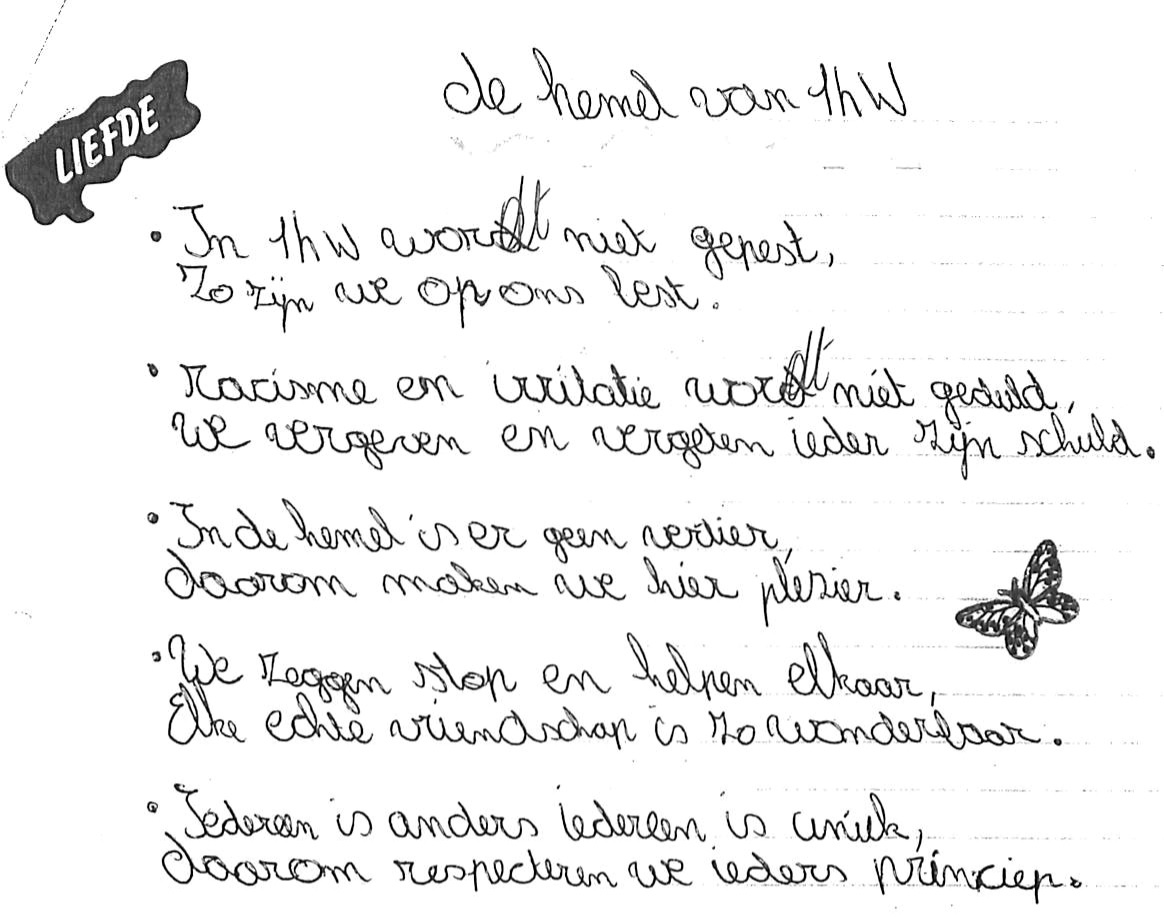 de hemel van 1hW
LIEFDE
• In 1hW wordt niet gepest,
Zo zijn we op ons best.
• Racisme en irritatie wordt niet geduld,
We vergeven en vergeten ieder zijn schuld.
• In de hemel is er geen vertier,
daarom maken we hier plezier.
• We zeggen stop en helpen elkaar,
Elke echte vriendschap is zo wonderbaar.
• Iedereen is anders iedereen is uniek,
daarom respecteren we ieders princiep.